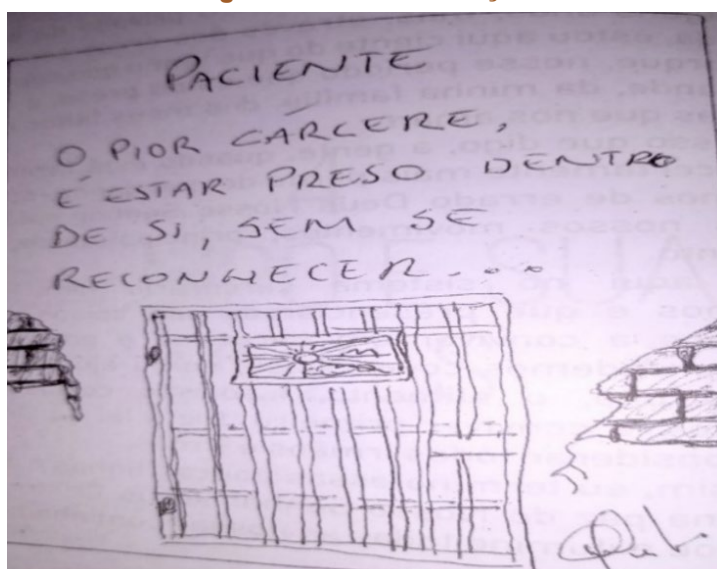 PACIENTE
O PIOR CÁRCERE,
É ESTAR PRESO DENTRO
DE SI, SEM SE
RECONHECER...